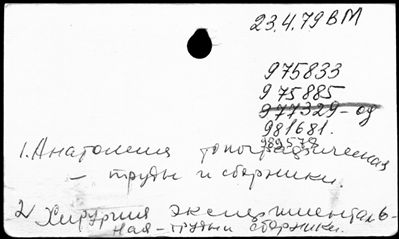 23.4.79 ВМ
975833
975885
977329-од
981681.
989578
1. Анатомия топографическая
- труды и сборники.
2. Хирургия эксперименталь-
ная - труды и сборники.